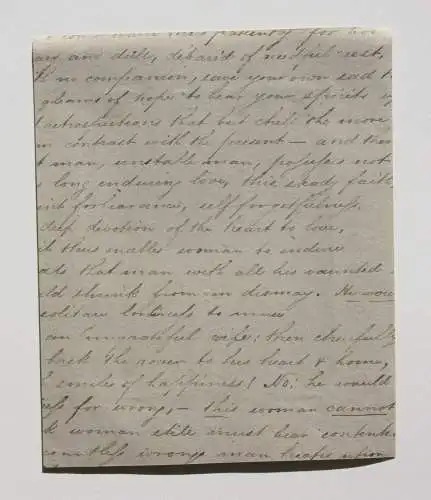 patiently for
and dull, debar'd of needful rest,
no companion, save your own sad
gleams of hope to bear your spirits
that but chill the more
in contrast with the present — and
man, unstable man, possesses not
long enduring love, this steady faith,
forbearance, self forgetfulness,
deep devotion of the heart to love,
thus enables woman to endure
that man with all his vaunted
shrink from in dismay. He
solitary to muse
an ungrateful wife; then cheerfully
back the rover to his heart & home,
smiles of happiness! No! he would
for wrong, — this woman cannot
woman still must bear
wrongs man heaps upon